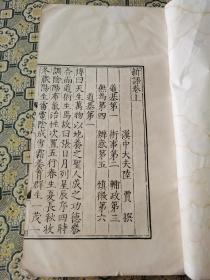 新語卷上
漢中大夫陸賈撰
道基第一 術事第二 輔政第三
無為第四 辨惑第五 慎微第六
道基第一
傳曰天生萬物以地養之聖人成之功德參
合而道術生焉故曰張日月列星辰序四時
調陰陽布氣治性次置五行春生夏長秋收
冬藏陽生雷電陰成雪霜養育群生一茂一